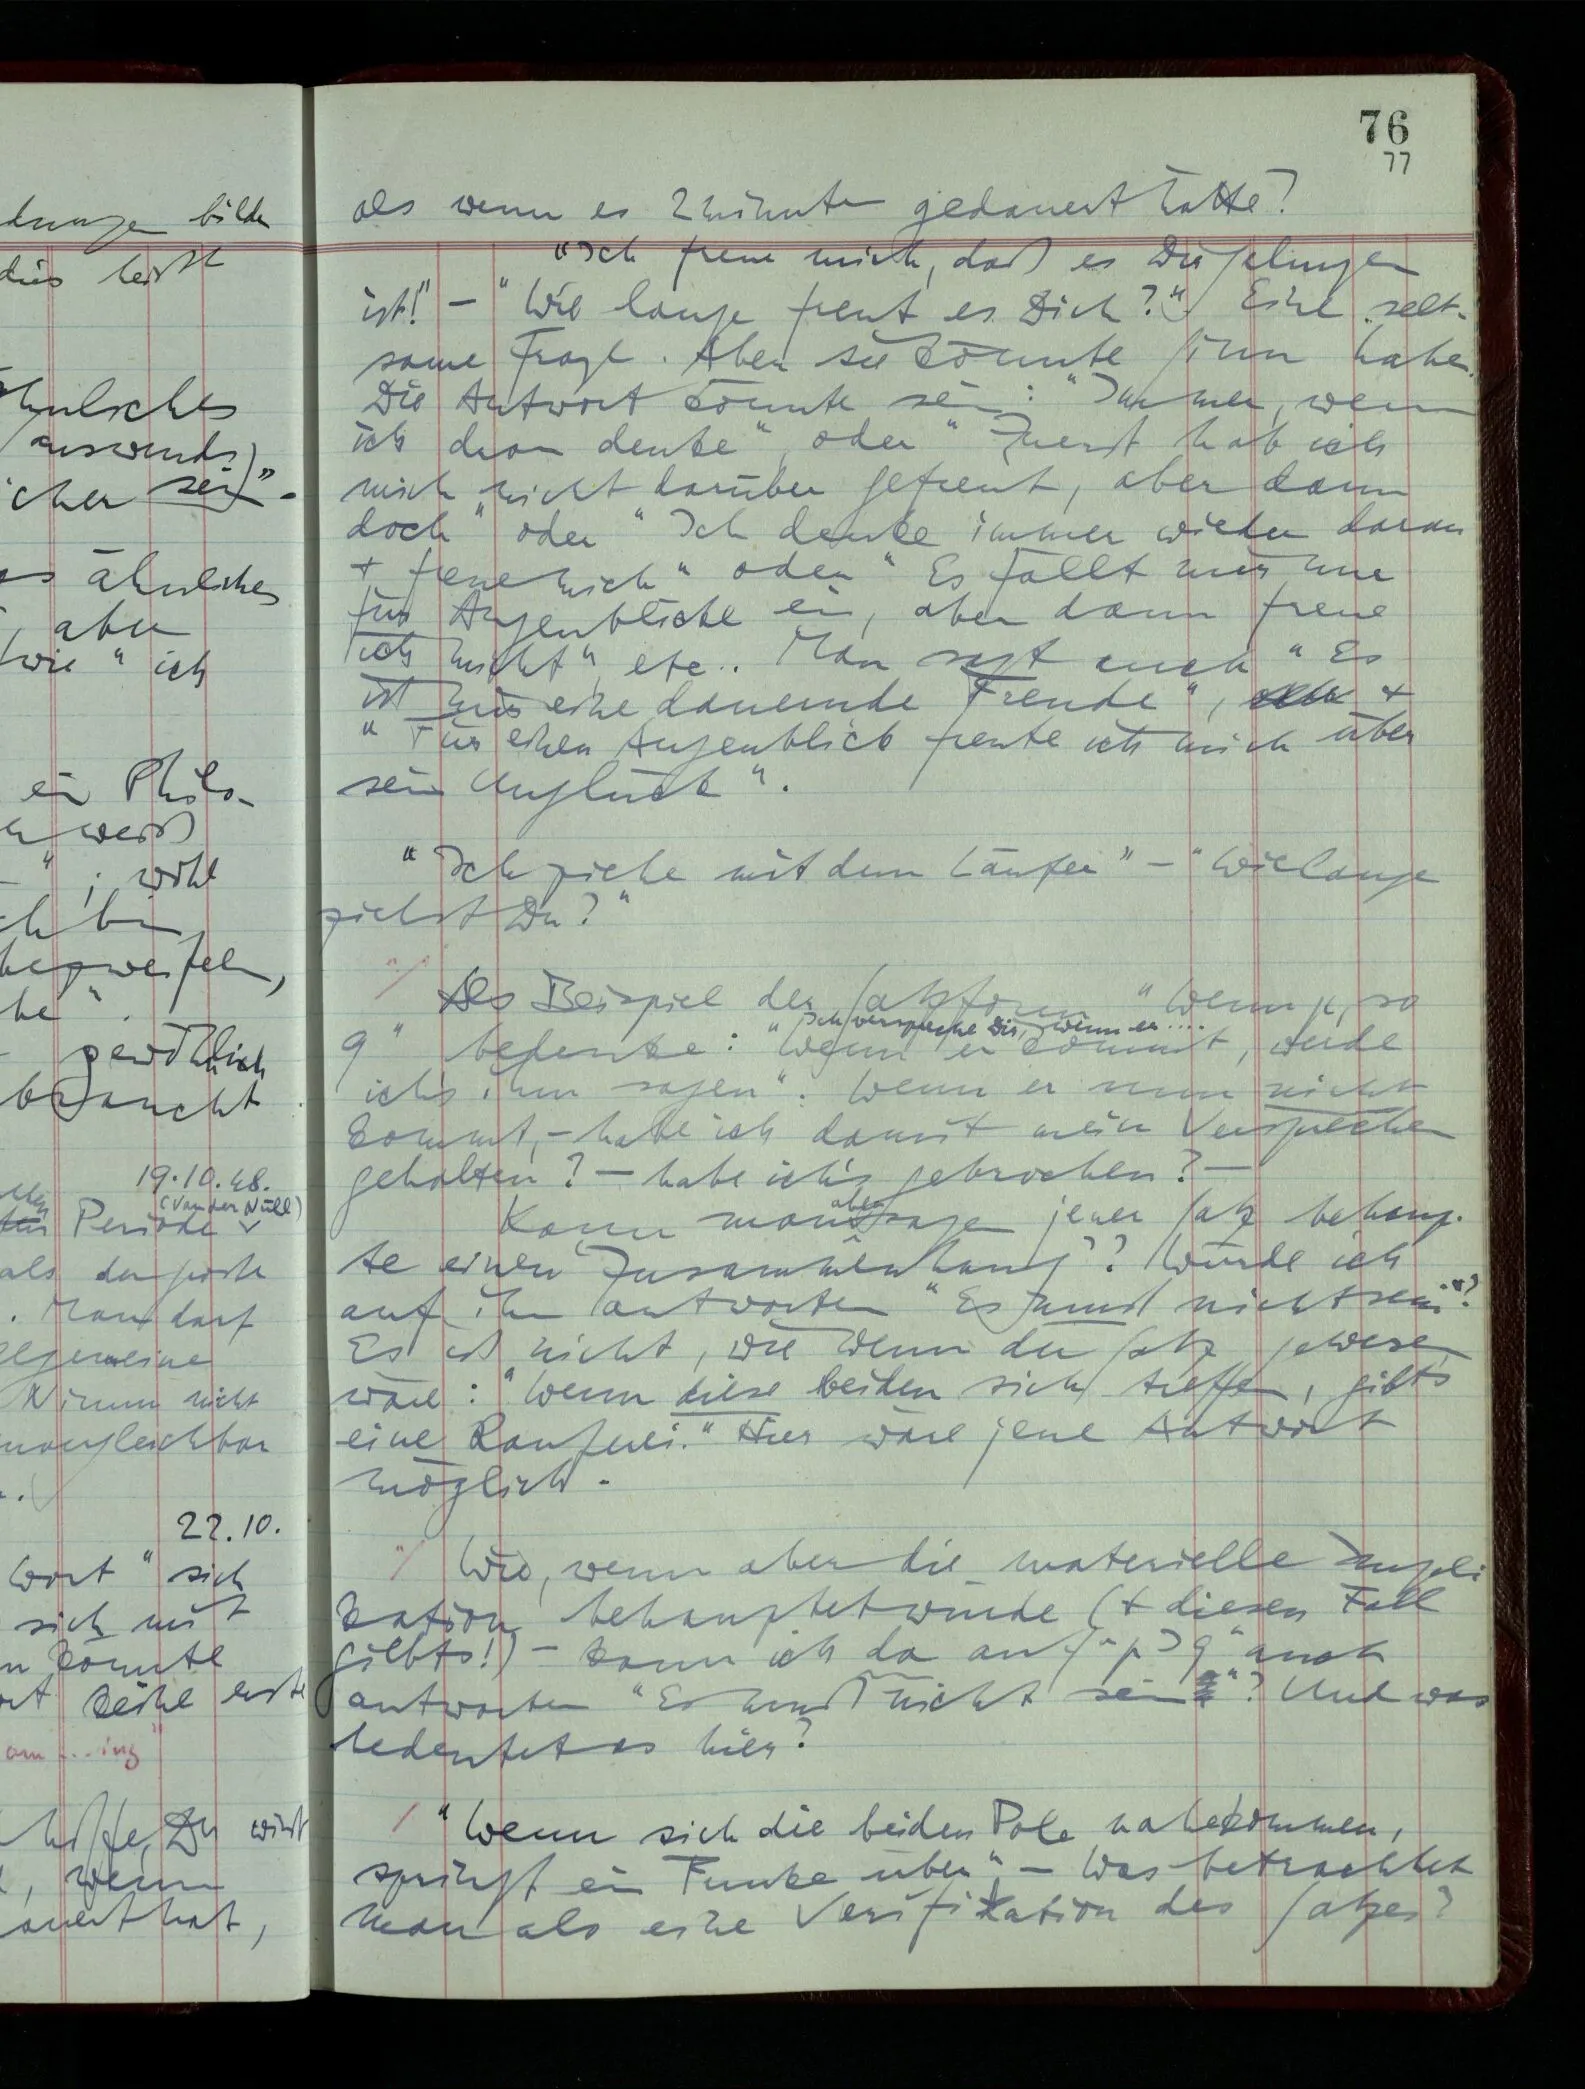 76
77
als wenn es 2 Minuten gedauert hätte?
"Ich freue mich, daß es Dir gelungen
ist!" – "Wie lange freut es Dich?" Eine selt-
same Frage. Aber sie könnte Sinn haben.
Die Antwort könnte sein: "Immer, wenn
ich dran denke", oder "Zuerst hab ich
mich nicht darüber gefreut, aber dann
doch" oder "Ich denke immer wieder daran
+ freue mich" oder "Es fällt mir nur
für Augenblicke ein, aber dann freue
ich mich", etc.. Man sagt auch "Es
ist mir eine dauernde Freude", +
"Für einen Augenblick freute ich mich über
sein Unglück".
"Ich ziehe mit dem Läufer" – "Wie lange
ziehst Du?"
Als Beispiel der Satzform "Wenn p, so
Ich verspreche Dir, wenn er ....
q" bedenke: "Wenn er kommt, werde
ich's ihm sagen". Wenn er nun nicht
kommt, – habe ich damit mein Versprechen
gehalten? – habe ich's gebrochen? –
Kann man aber sagen jener Satz behaup-
te einen Zusammenhang? Würde ich
auf ihn antworten "Es muß nicht sein"?
Es ist nicht, wie wenn der Satz gewesen
wäre: "Wenn diese beiden sich treffen, gibts
eine Rauferei." Hier wäre jene Antwort
möglich.
Wie, wenn aber die materielle Impli
kation behauptet würde (+ diesen Fall
gibts!) – kann ich da auf "p⊃q" auch
antworten "Es muß nicht sein"? Und was
bedeutet es hier?
"Wenn sich die beiden Pole nahekommen,
springt ein Funke über" – Was betrachtet
man als eine Verifikation des Satzes?
bilde
dies heißt
ähnliches
aber
wie "ich
ein Philo-
weiß
"; wohl
bezweifeln,
gewöhnlich
19.10.48.
(Van der Nüll)
Periode
als der große
. Man darf
nicht
unvergleichbar
22.10.
Wort" sich
sich mit
könnte
keine erste
hoffe, Du wirst
, wenn